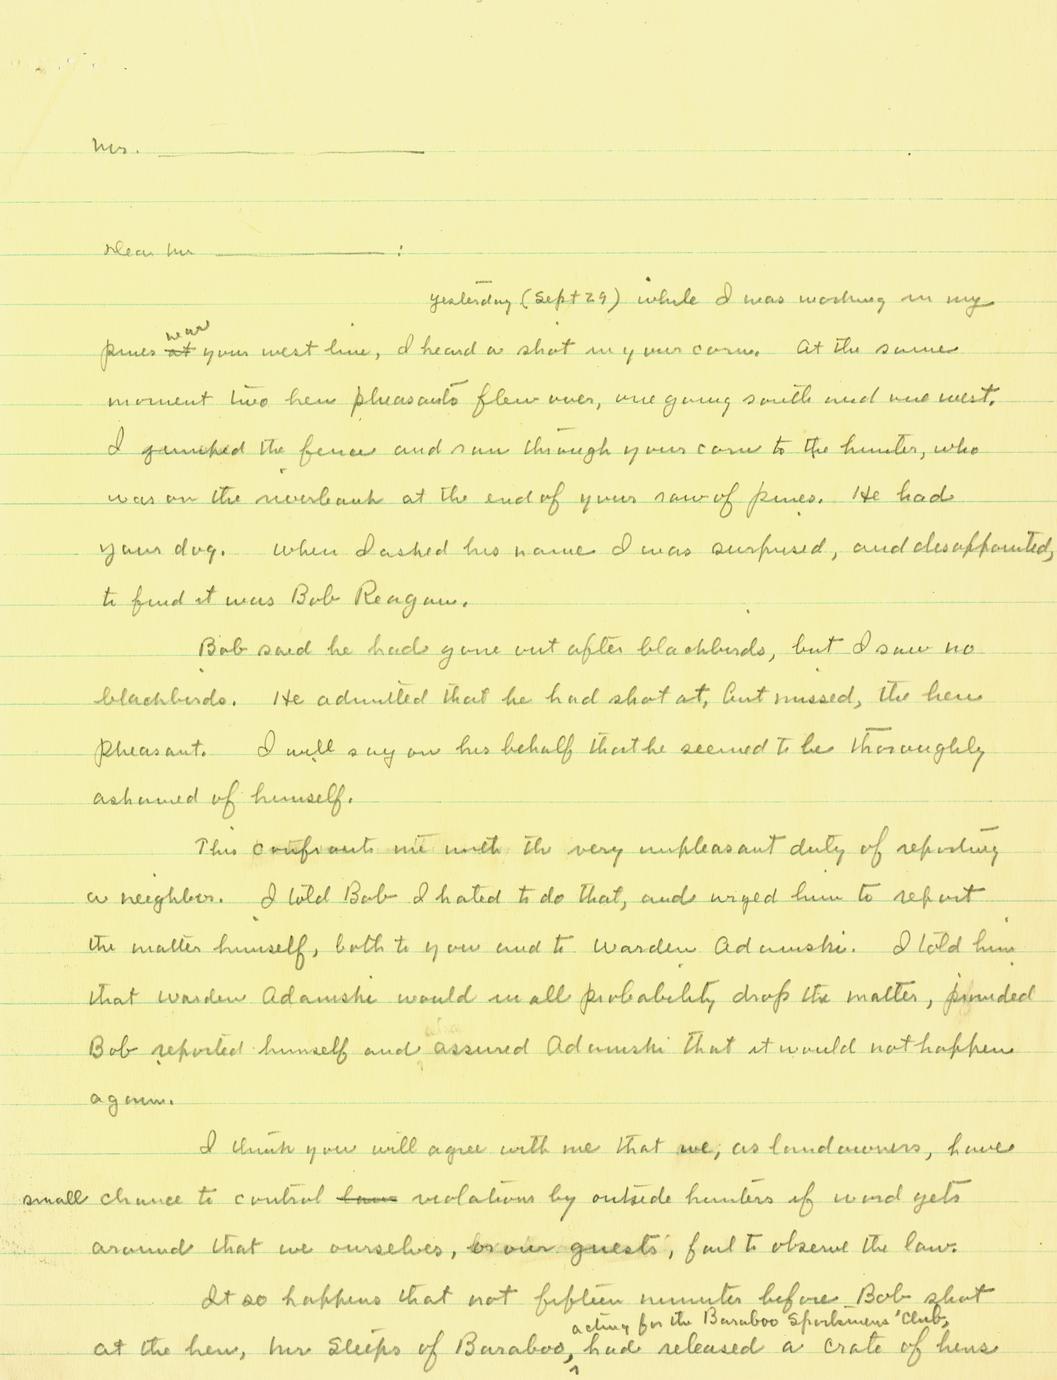 Mr. ____________
Dear Mr ____________ :
Yesterday (Sept 29) while I was working in my
near
pines at your west line, I heard a shot in your corn. At the same
moment two hen pheasants flew over, one going south and one west.
I jumped the fence and ran through your corn to the hunter, who
was on the riverbank at the end of your row of pines. He had
your dog. When I asked his name I was surprised, and disappointed,
to find it was Bob Reagan.
Bob said he had gone out after blackbirds, but I saw no
blackbirds. He admitted that he had shot at, but missed, the hen
pheasant. I will say on his behalf that he seemed to be thoroughly
ashamed of himself.
This confronts me with the very unpleasant duty of reporting
a neighbor. I told Bob I hated to do that, and urged him to report
the matter himself, both to you and to Warden Adamski. I told him
that Warden Adamski would in all probability drop the matter, provided
Bob reported himself and assured Adamski that it would not happen
again.
I think you will agree with me that we, as landowners, have
small chance to control law violations by outside hunters if word gets
around that we ourselves, or our guests, fail to observe the law.
It so happens that not fifteen minutes before Bob shot
acting for the Baraboo Sportsmens' Club,
at the hen, Mr Sleips of Baraboo, had released a crate of hens